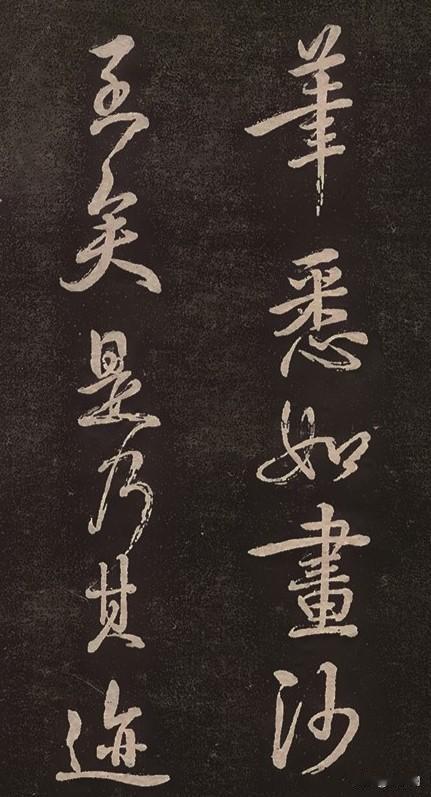 筆悉如畫沙
至矣是乃其迹